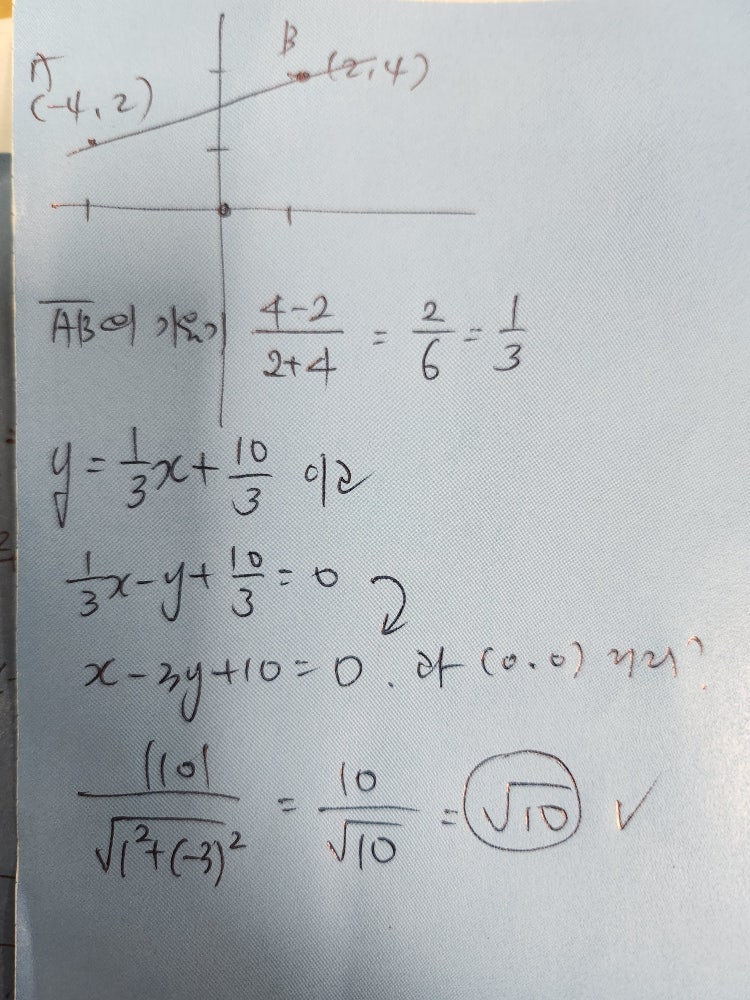 B
A
(-4, 2)
(2, 4)
AB의 기울기 (4-2)/(2+4) = 2/6 = 1/3
y = 1/3x + 10/3 이므로
1/3x - y + 10/3 = 0
x - 3y + 10 = 0. 과 (0.0) 거리?
|10|/√1²+(-3)² = 10/√10 = √10 ✓